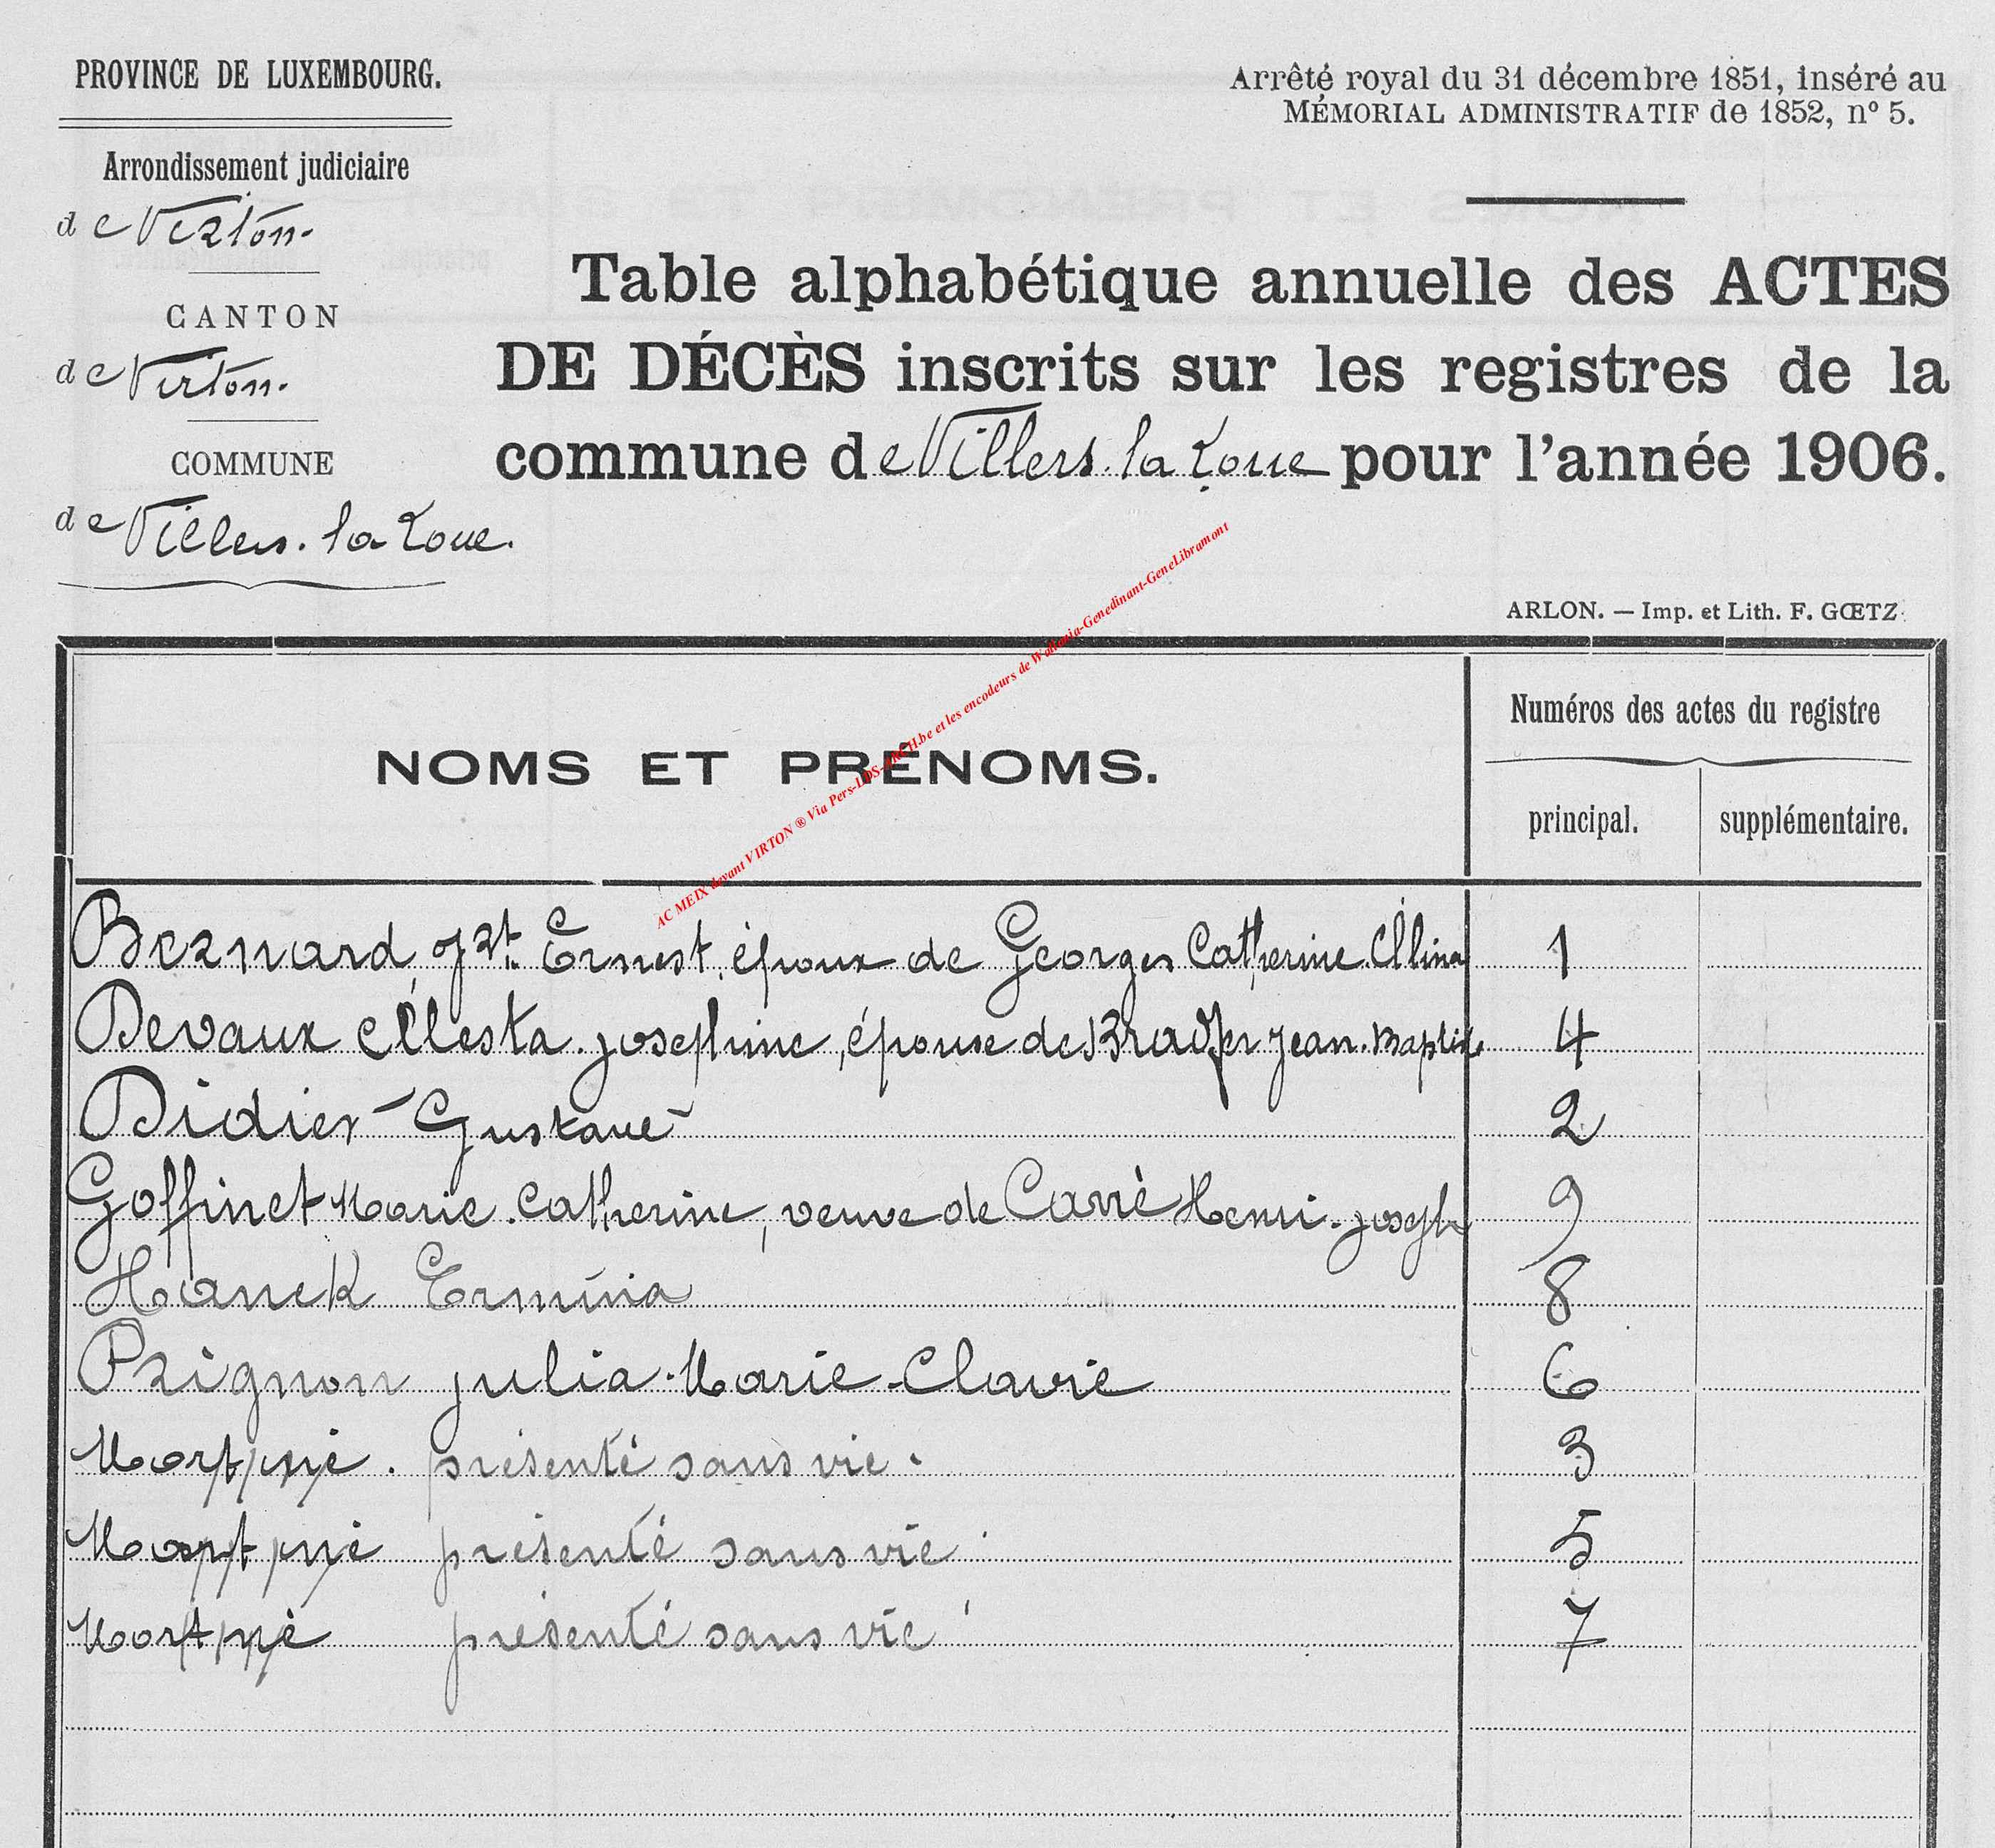 PROVINCE DE LUXEMBOURG.
Arrêté royal du 31 décembre 1851, inséré au
MÉMORIAL ADMINISTRATIF de 1852, n° 5.
Arrondissement judiciaire
de Virton.
CANTON
de Virton.
COMMUNE
de Villers. la Loue.
Table alphabétique annuelle des ACTES
DE DÉCÈS inscrits sur les registres de la
commune de Villers. la Loue pour l'année 1906.
ARLON. — Imp. et Lith. F. GŒTZ.
AC MEIX devant VIRTON ® Via Pers-LDS-ARCH.be et les encodeurs de Wallonia-Genedinant-GeneLibramont
NOMS ET PRÉNOMS.
Numéros des actes du registre
principal. supplémentaire.
Bernard Ernest, époux de Georges Catherine 1
Devaux josephine, épouse de Jean. Baptiste 4
Didier Gustave 2
Goffinet Marie. Catherine, veuve de Carré Henri. joseph 9
Hanck Erminia 8
Prignon julia. Marie. 6
Mort né. présenté sans vie. 3
Mort né présenté sans vie 5
Mort né présenté sans vie 7